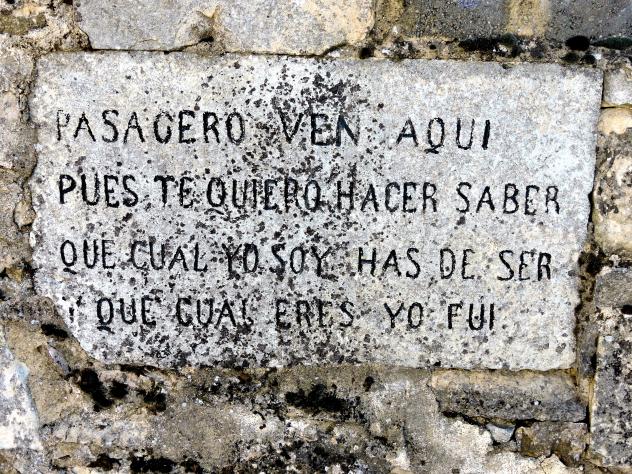 PASAGERO VEN AQUI
PUES TE QUIERO HACER SABER
QUE CUAL YO SOY HAS DE SER
Y QUE CUAL ERES YO FUI